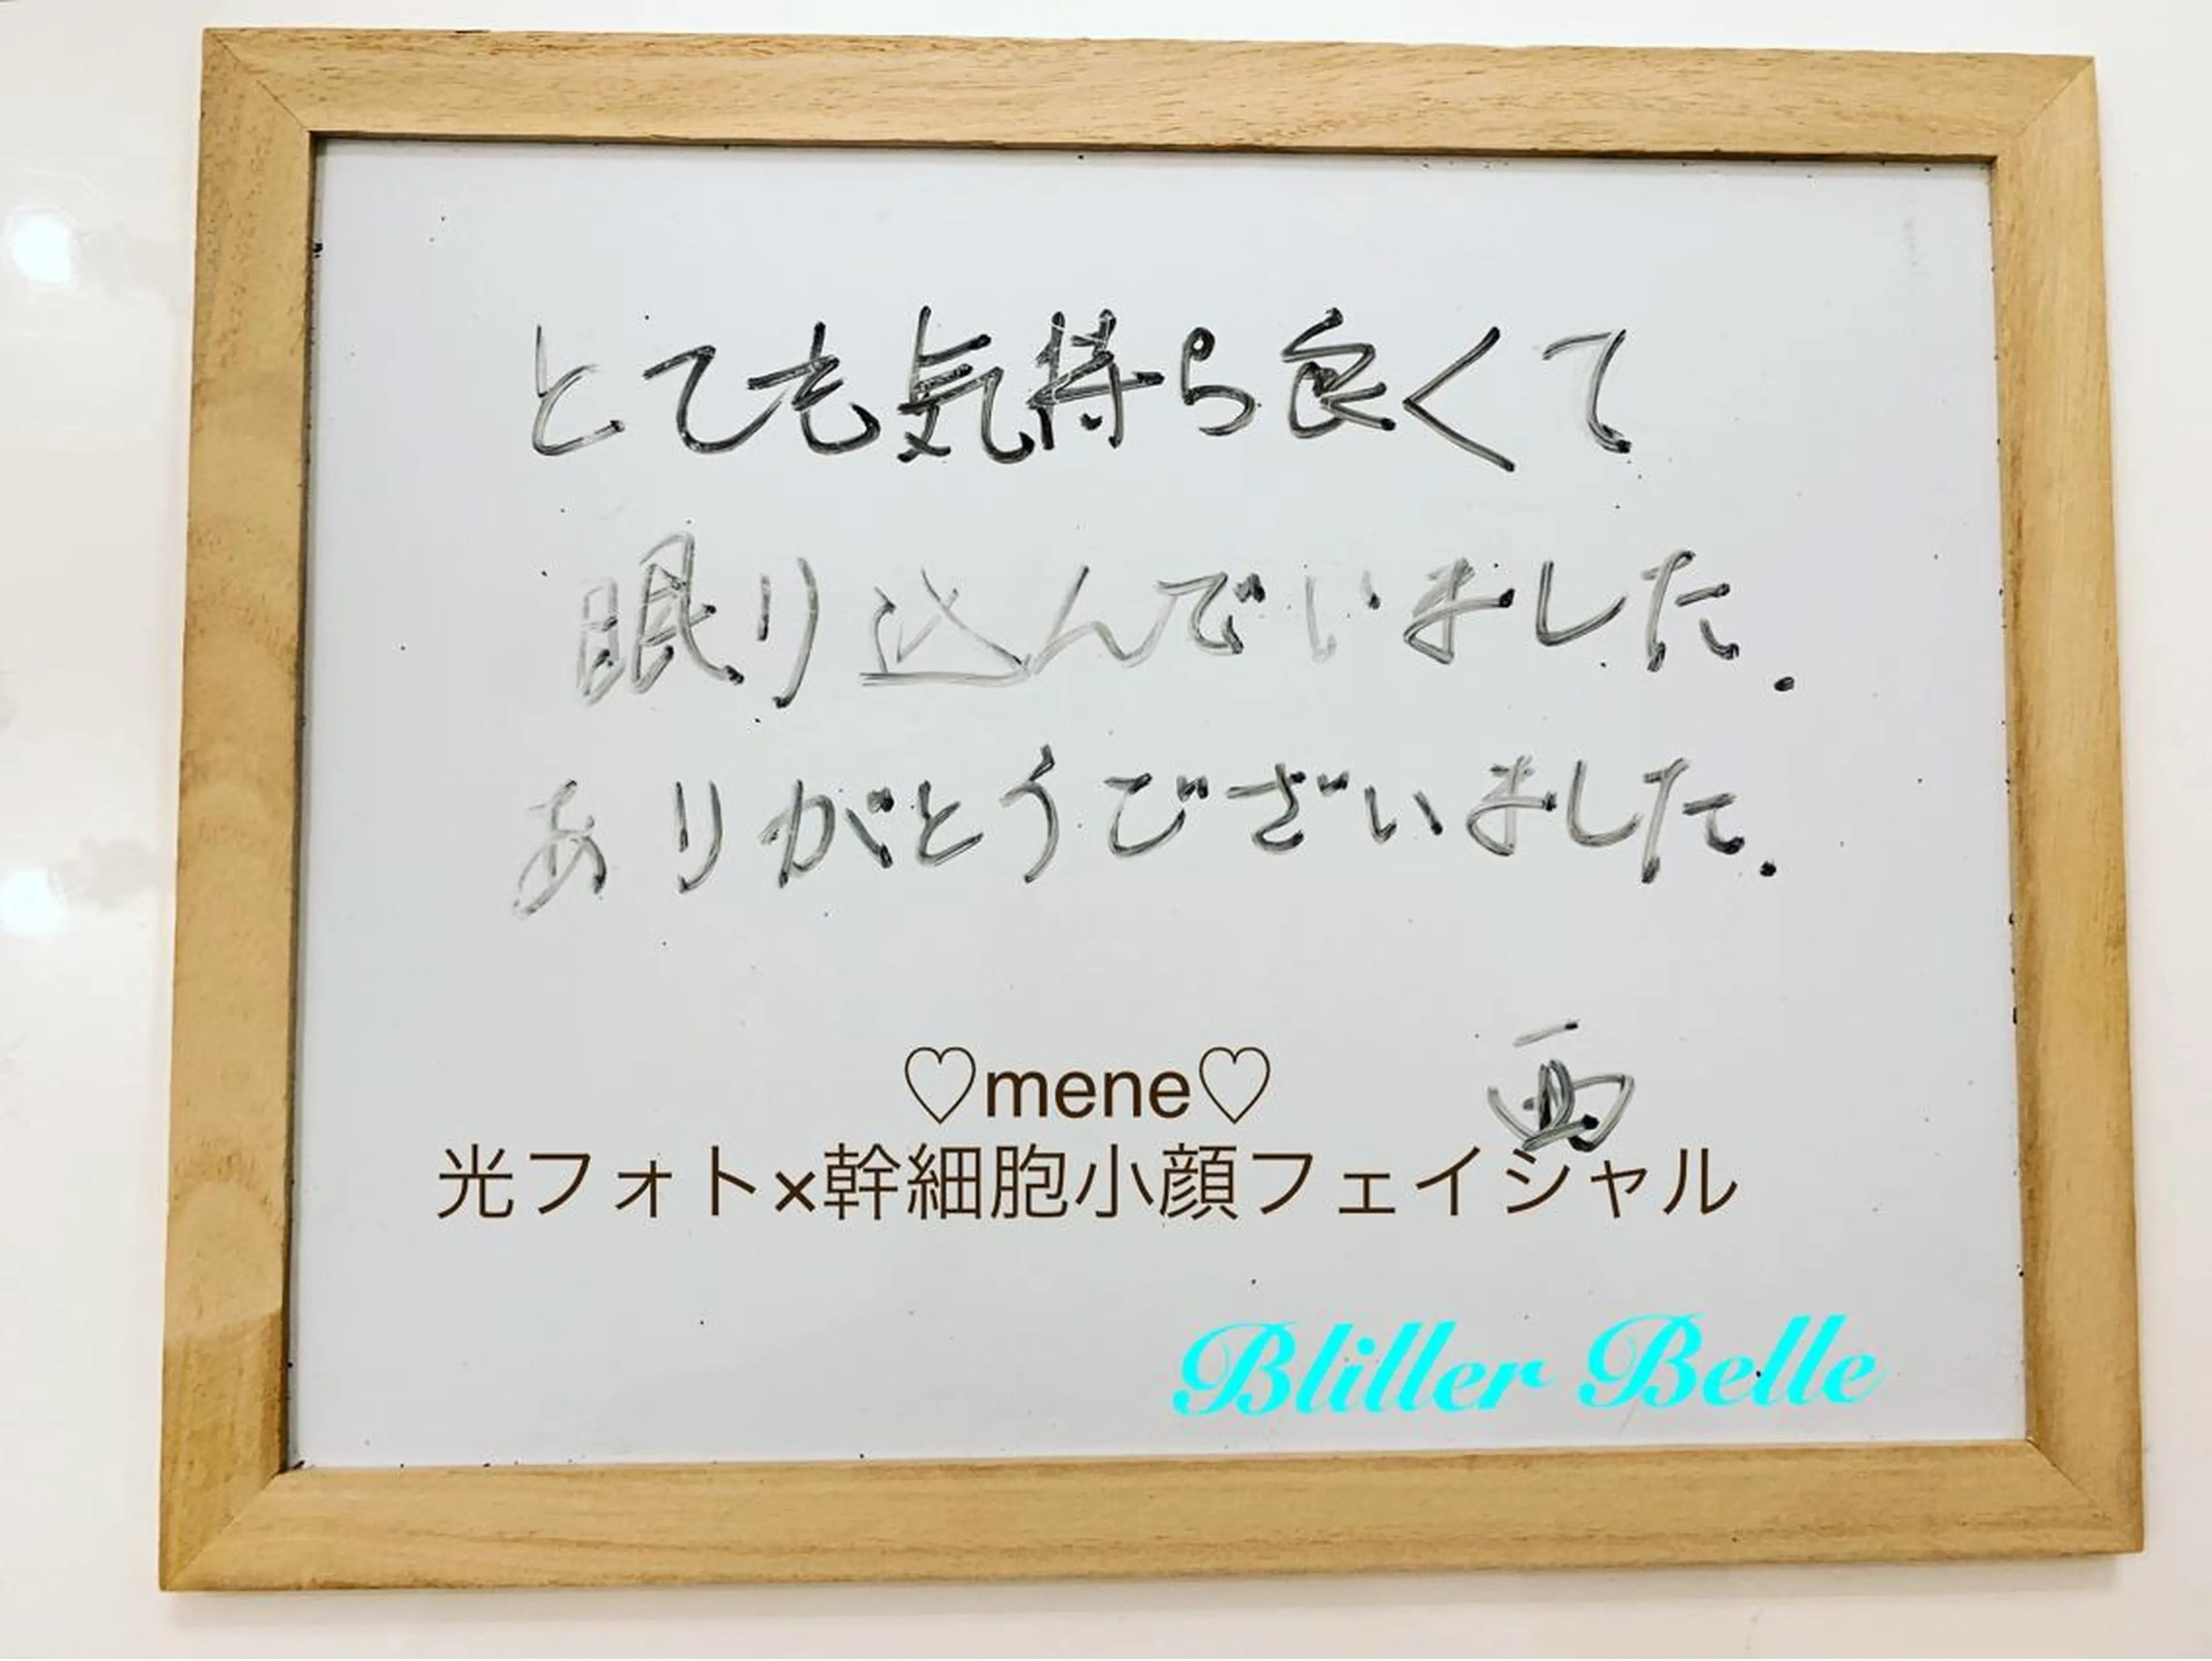 とても気持ち良くて
眠り込んでいました.
ありがとうございました.
西
♡mene♡
光フォト×幹細胞小顔フェイシャル
Bliller Belle